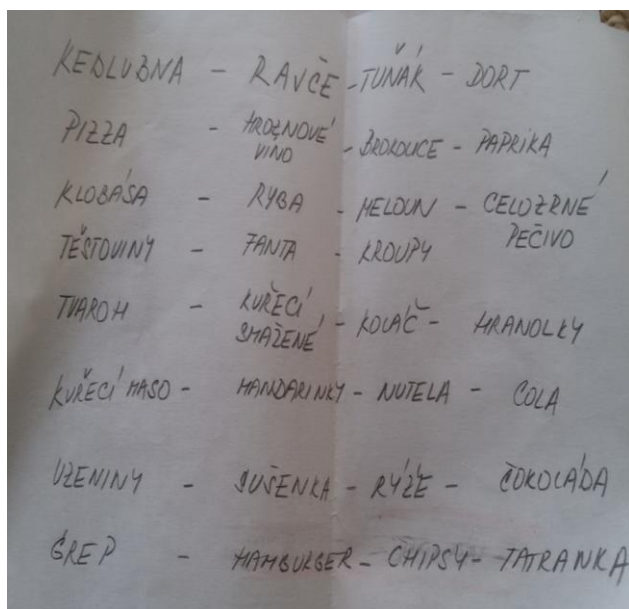 KEDLUBNA - RAVČE - TUŇÁK - DORT
PIZZA - HROZNOVÉ VINO - BROKOLICE - PAPRIKA
KLOBÁSA - RYBA - MELOUN - CELOZRNÉ PEČIVO
TĚSTOVINY - FANTA - KROUPY
TVAROH - KUŘECÍ SMAŽENÉ - KOLÁČ - HRANOLKY
KUŘECÍ MASO - MANDARINKY - NUTELA - COLA
UZENINY - SUŠENKA - RÝŽE - ČOKOLÁDA
GREP - HAMBURGER - CHIPSY - TATRANKA